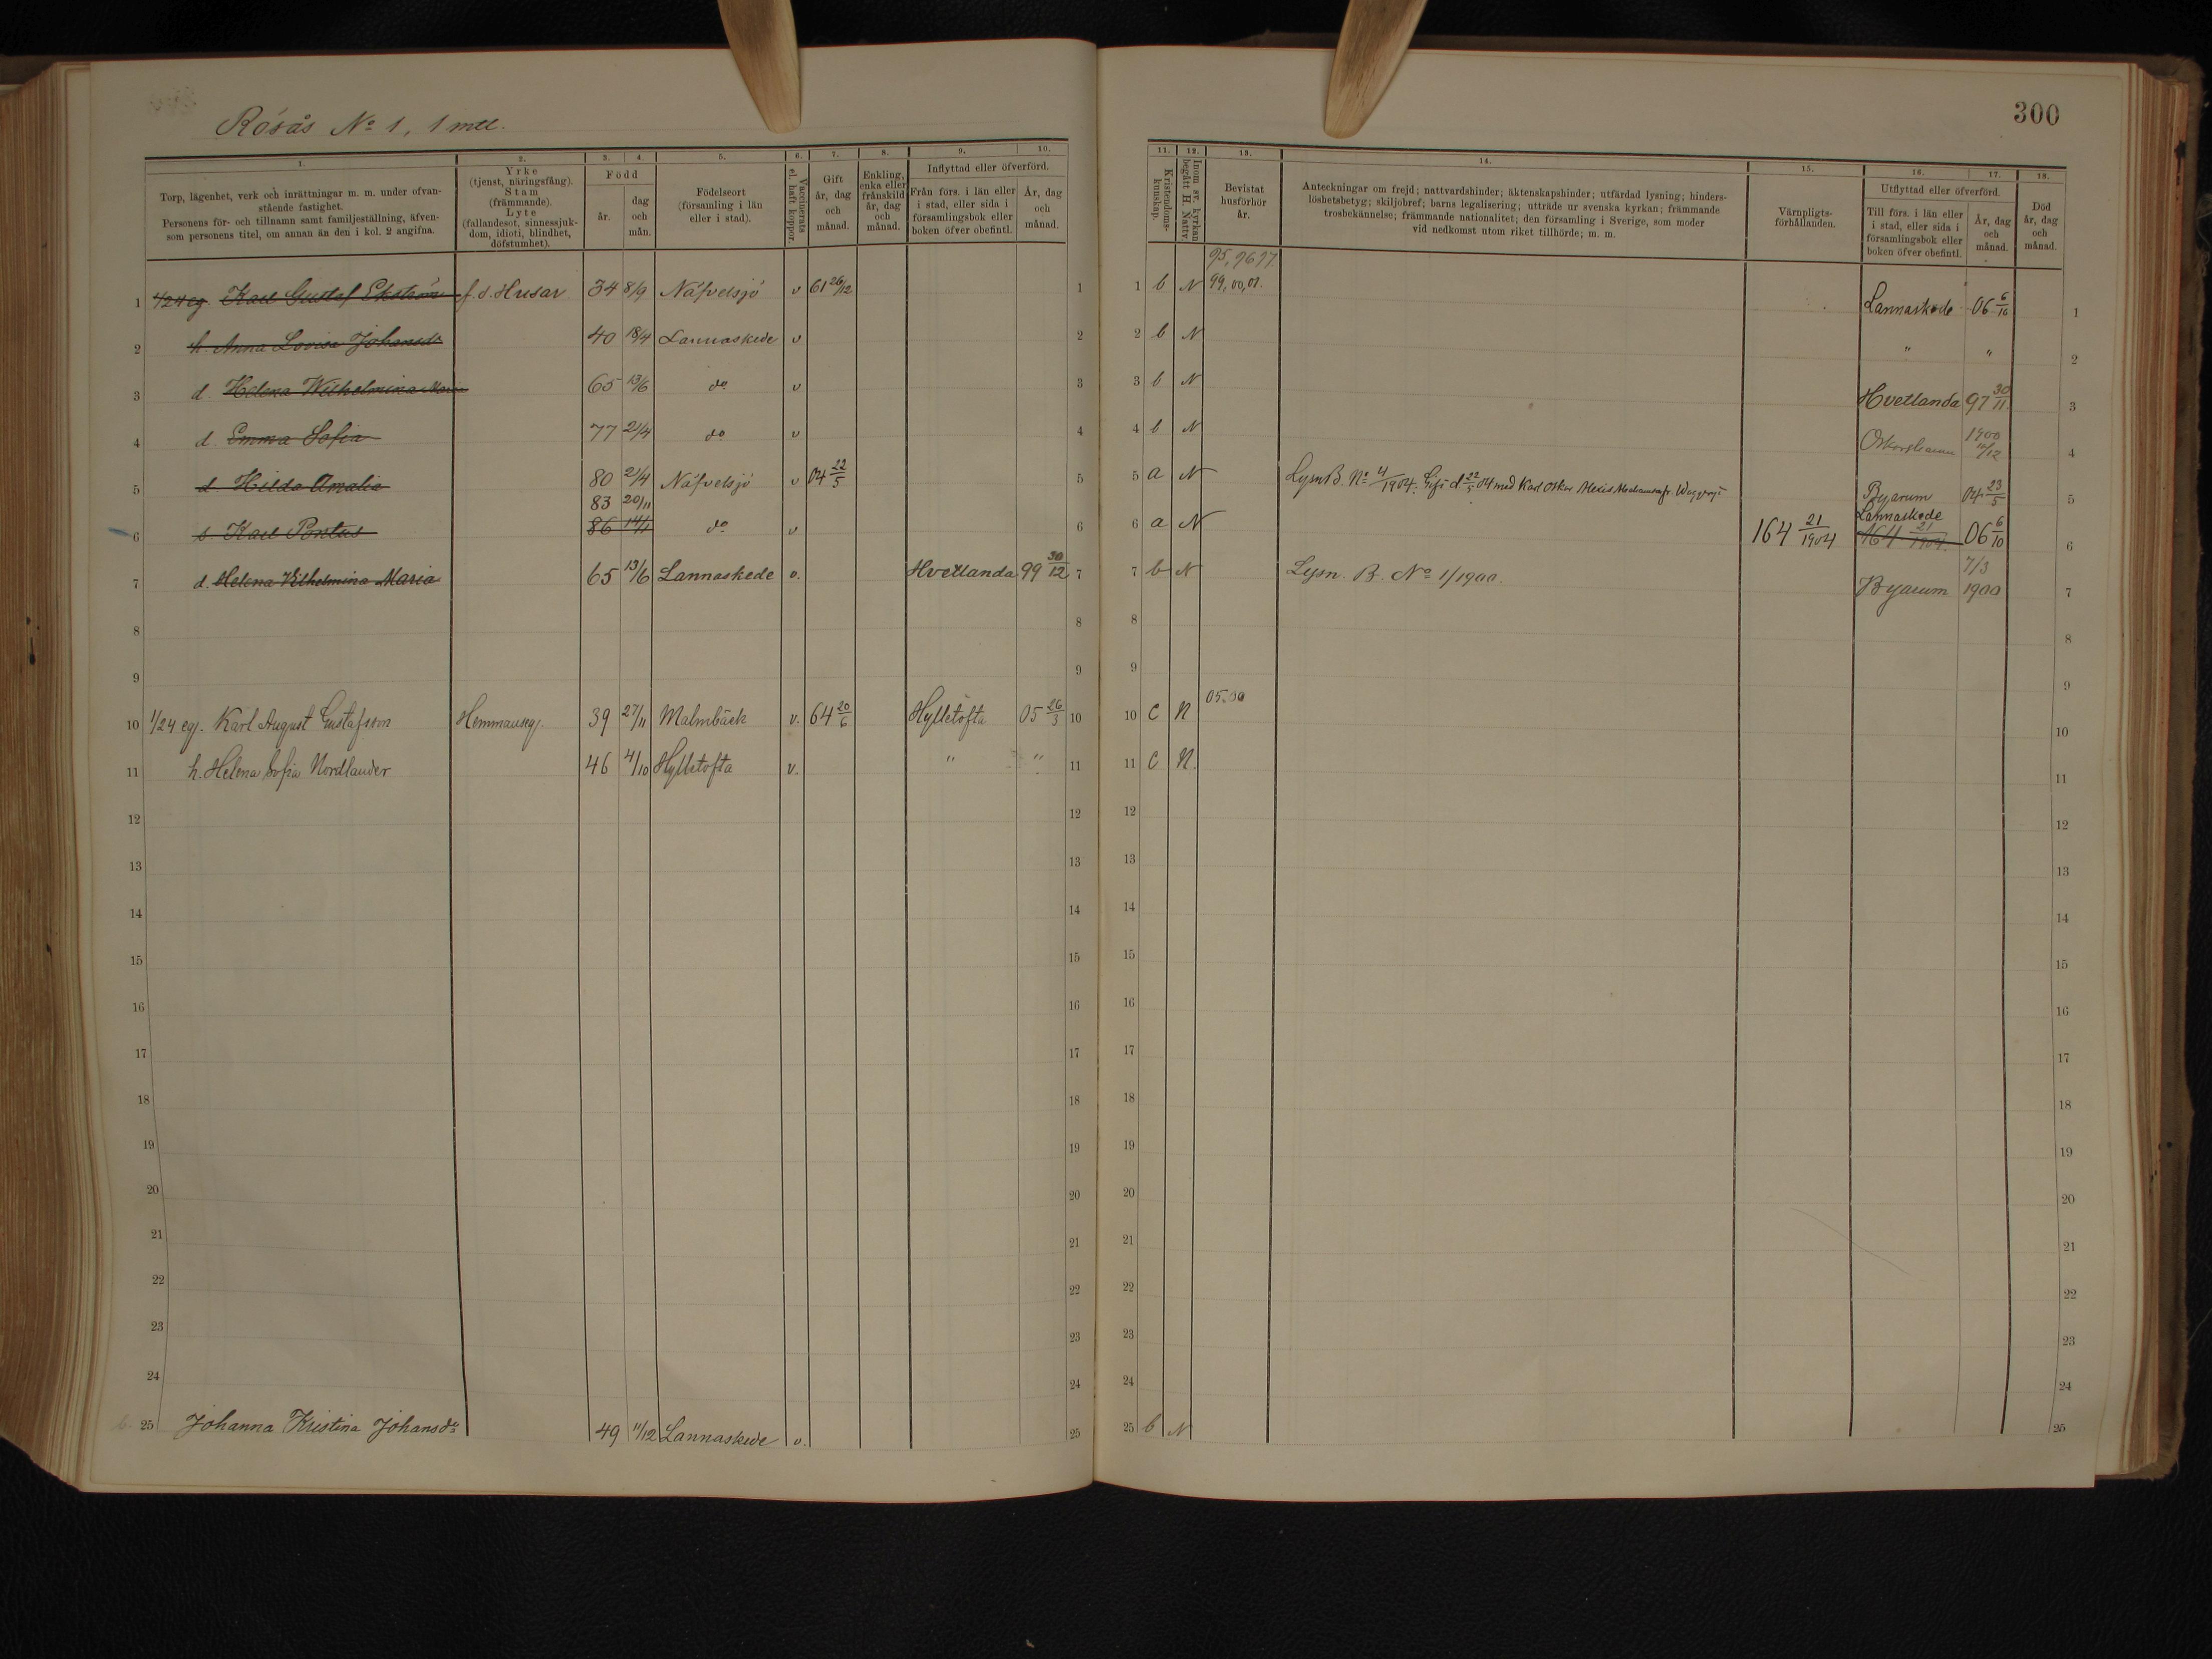 Rösås No 1, 1 mtl.
300
1. 2. 3. 4. 5. 6. 7. 8. 9. 10.
Torp, lägenhet, verk och inrättningar m. m. under ofvan-
stående fastighet.
Personens för- och tillnamn samt familjeställning, äfven-
som personens titel, om annan än den i kol. 2 angifna.
Yrke
(tjenst, näringsfång).
Stam
(främmande).
Lyte
(fallandesot, sinnessjuk-
dom, idioti, blindhet,
döfstumhet).
Född
år.
dag
och
mån.
Födelseort
(församling i län
eller i stad).
Vaccinerats
el. haft koppor.
Gift
år, dag
och
månad.
Enkling,
enka eller
frånskild
år, dag
och
månad.
Inflyttad eller öfverförd.
Från förs. i län eller
i stad, eller sida i
församlingsbok eller
boken öfver obefintl.
År, dag
och
månad.
11. 12. 13. 14. 15. 16. 17. 18.
Kristendoms-
kunskap.
Inom sv. kyrkan
begått H. Nattv.
Bevistat
husförhör
år.
Anteckningar om frejd; nattvardshinder; äktenskapshinder; utfärdad lysning; hinders-
löshetsbetyg; skiljobref; barns legalisering; utträde ur svenska kyrkan; främmande
trosbekännelse; främmande nationalitet; den församling i Sverige, som moder
vid nedkomst utom riket tillhörde; m. m.
Värnpligts-
förhållanden.
Utflyttad eller öfverförd.
Till förs. i län eller
i stad, eller sida i
församlingsbok eller
boken öfver obefintl.
År, dag
och
månad.
Död
år, dag
och
månad.
95, 96 97
1 1/24 eg. Karl Gustaf Ekström f. d. Husar 34 8/9 Näfvelsjö v 61 26/12 1
1 b N 99, 00, 01. Lannaskede 06 6/10 1
2 h. Anna Lovisa Johansdr 40 18/4 Lannaskede v 2
2 b N " " 2
3 d. Helena Wilhelmina Maria 65 13/6 do v 3
3 b N Hvetlanda 97 30/11 3
4 d. Emma Sofia 77 21/4 do v 4
4 b N Oskarshamn 1900 11/12 4
5 d. Hilda Amalia 80 21/4 Näfvelsjö v 04 22/5 5
5 a N Lysn B. No 4/1904. Gift d 22/5 04 med Karl Oskar Alexis Byarum 04 23/5 5
83 20/11
6 s. Karl Pontus 86 14/11 do v 6
6 a N 164 21/1904 Lannaskede 164 21/1904 06 6/10 6
7 d. Helena Vilhelmina Maria 65 13/6 Lannaskede v. Hvetlanda 99 30/12 7
7 b N Lysn. B. No 1/1900. Byarum 7/3 1900 7
8 8 8 8
9 9 9 9
10 1/24 eg. Karl August Gustafsson Hemmanseg. 39 27/11 Malmbäck v. 64 20/6 Hylletofta 05 26/3 10
10 C N 05.06 10
11 h. Helena Sofia Nordlander 46 4/10 Hylletofta v. " " 11
11 C N. 11
12 12 12 12
13 13 13 13
14 14 14 14
15 15 15 15
16 16 16 16
17 17 17 17
18 18 18 18
19 19 19 19
20 20 20 20
21 21 21 21
22 22 22 22
23 23 23 23
24 24 24 24
b. 25 Johanna Kristina Johansdr 49 11/12 Lannaskede v. 25
25 b N 25